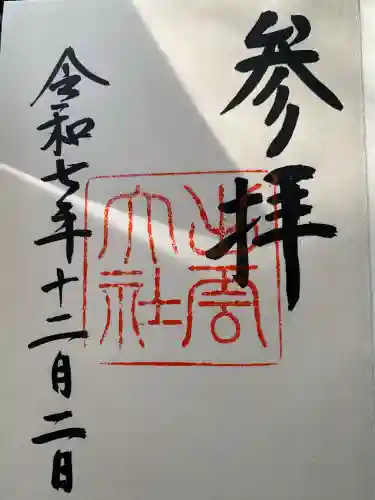 参拝
出雲大社
令和七年十二月二日